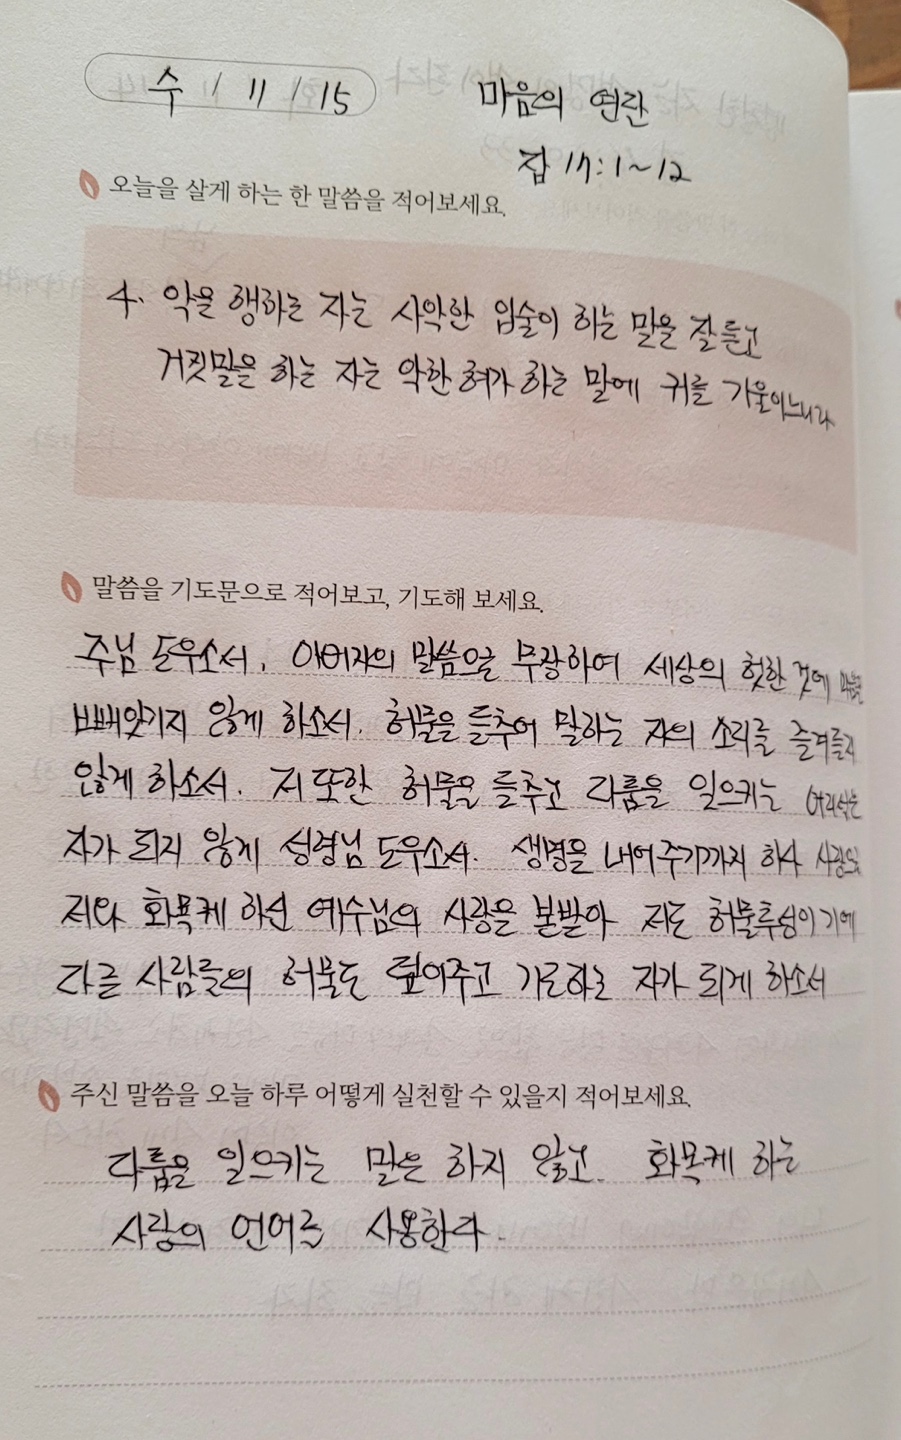 수 / 11 / 15
마음의 연단
잠 17:1~12
오늘을 살게 하는 한 말씀을 적어보세요.
4. 악을 행하는 자는 사악한 입술이 하는 말을 잘 듣고
거짓말을 하는 자는 악한 혀가 하는 말에 귀를 기울이느니라
말씀을 기도문으로 적어보고, 기도해 보세요.
주님 도우소서. 아버지의 말씀으로 무장하여 세상의 헛한 것에 마음을
빼앗기지 않게 하소서. 허물을 들추어 말하는 자의 소리를 즐겨듣지
않게 하소서. 저 또한 허물을 들추고 다툼을 일으키는 어리석은
자가 되지 않게 성령님 도우소서. 생명을 내어주기까지 하사
저와 화목케 하신 예수님의 사랑을 본받아 저도 허물투성이기에
다른 사람들의 허물도 덮어주고 기도하는 자가 되게 하소서
주신 말씀을 오늘 하루 어떻게 실천할 수 있을지 적어보세요.
다툼을 일으키는 말은 하지 않고. 화목케 하는
사랑의 언어를 사용한다.